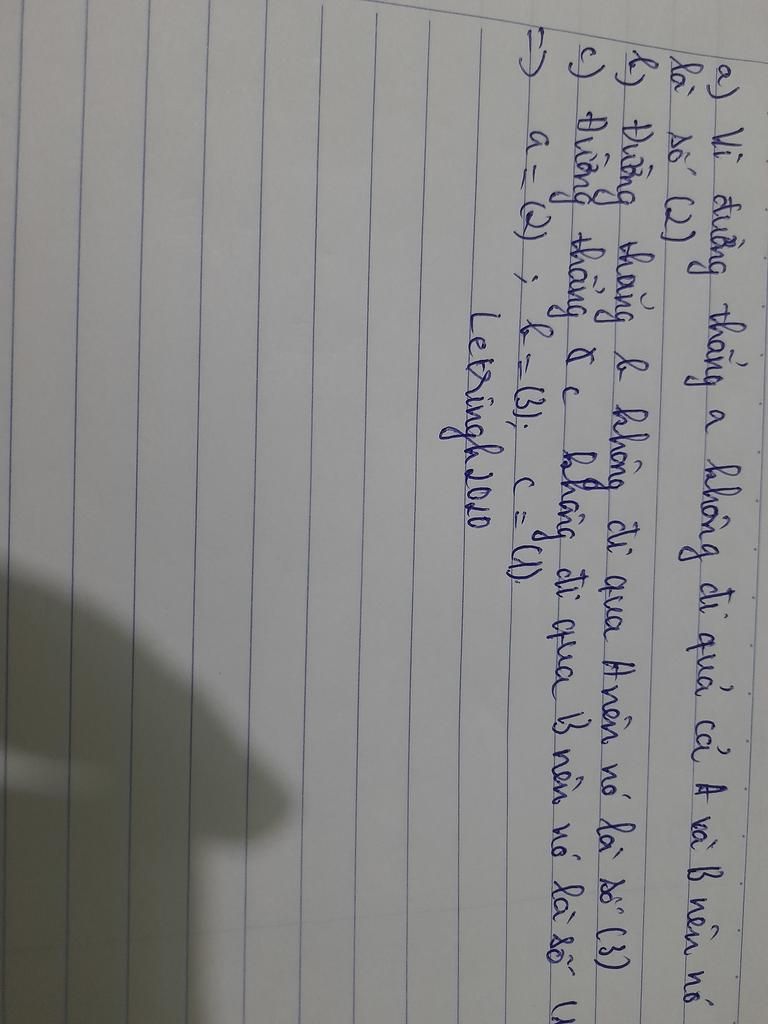 a) Vì đường thẳng a không đi quả cả A và B nên nó
là số (2)
b) Đường thẳng b không đi qua A nên nó là số (3)
c) Đường thẳng c không đi qua B nên nó là số (1
=) a = (2) ; b = (3); c = (1).